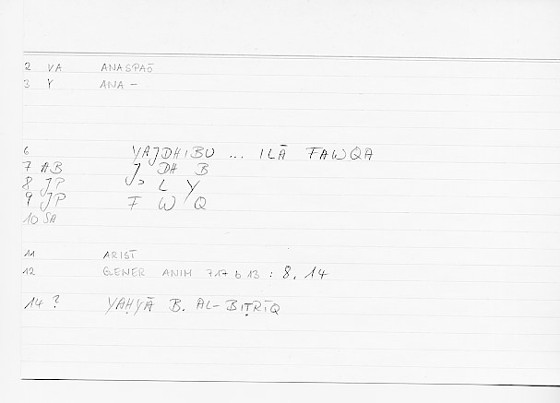 2 VA ANASPAŌ
3 Y ANA -
6 YAJDHIBU ... ILĀ FAWQA
7 AB J DH B
8 JP ʾ L Y
9 JP F W Q
10 SA
11 ARIST
12 GENER ANIM 717 b 13 : 8, 14
14 ? YAḤYĀ B. AL-BIṬRĪQ